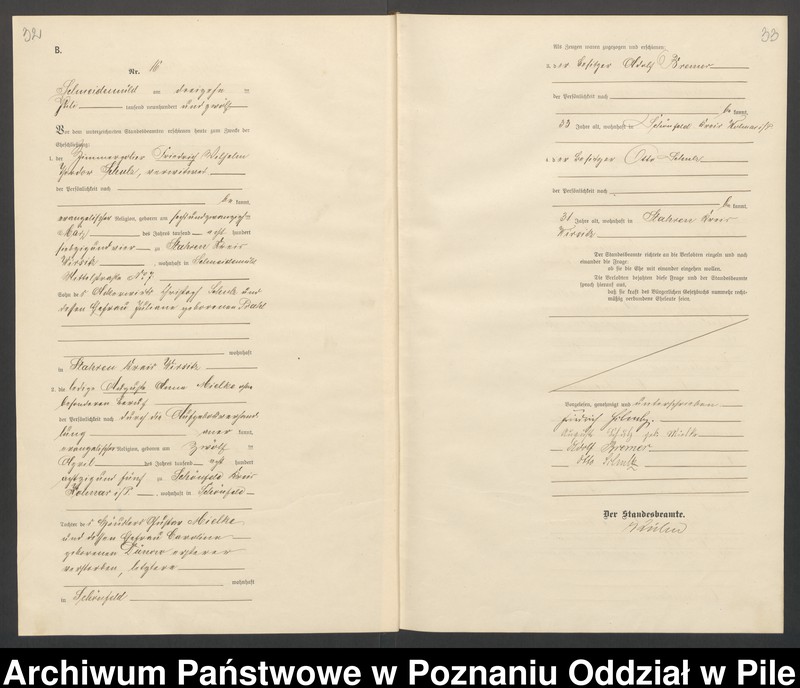 32
B.
Nr. 16
Schneidemühl am dreizehn
tausend neunhundert und zwölf
Vor dem unterzeichneten Standesbeamten erschienen heute zum Zwecke der
Eheschließung:
1. der Friedrich Wilhelm
Schulz, verwitwet
der Persönlichkeit nach
be kannt,
evangelischer Religion, geboren am sechsundzwanzigsten
März des Jahres tausend acht hundert
siebzigundvier zu Stahren Kreis
Wirsitz, wohnhaft in Schneidemühl
Mittelstraße No 7
Sohn des Christoph Schulz und
dessen Ehefrau Juliane geborenen
wohnhaft
in Stahren Kreis Wirsitz
2. die ledige Auguste Anna Mielke ohne
besonderen Beruf
der Persönlichkeit nach durch die Aufgebotsverhand
lung aner kannt,
evangelischer Religion, geboren am zwölf ten
April des Jahres tausend acht hundert
achtzigundfünf zu Schönfeld Kreis
Kolmar i/P., wohnhaft in Schönfeld
Tochter des Häuslers Gustav Mielke
und dessen Ehefrau Caroline
geborenen ersterer
verstorben, letztere
wohnhaft
in Schönfeld
33
Als Zeugen waren zugezogen und erschienen:
3. der Besitzer Adolf Bremer
der Persönlichkeit nach
be kannt,
33 Jahre alt, wohnhaft in Schönfeld Kreis Kolmar i/P.
4. der Besitzer Otto Schulz
der Persönlichkeit nach
be kannt,
31 Jahre alt, wohnhaft in Stahren Kreis
Wirsitz
Der Standesbeamte richtete an die Verlobten einzeln und nach
einander die Frage:
ob sie die Ehe mit einander eingehen wollen.
Die Verlobten bejahten diese Frage und der Standesbeamte
sprach hierauf aus,
daß sie kraft des Bürgerlichen Gesetzbuchs nunmehr recht-
mäßig verbundene Eheleute seien.
Vorgelesen, genehmigt und unterschrieben
Friedrich Schulz.
Auguste Schulz geb. Mielke
Adolf Bremer
Otto Schulz
Der Standesbeamte.
Archiwum Państwowe w Poznaniu Oddział w Pile